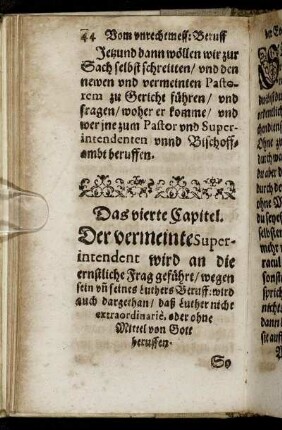 44 Vom vnrechtmess: Beruff
Jetzund dann wöllen wir zur
Sach selbst schreitten/ vnd den
newen vnd vermeinten Pasto-
rem zu Gericht führen/ vnd
fragen/ woher er komme/ vnd
wer jne zum Pastor vnd Super-
intendenten vnnd Bischoff-
ambt beruffen.
Das vierte Capitel.
Der vermeinte Super-
intendent wird an die
ernstliche Frag geführt/ wegen
sein vñ seines Luthers Beruff: wird
auch dargethan/ daß Luther nicht
extraordinariè, oder ohne
Mittel von Gott
beruffen.
So